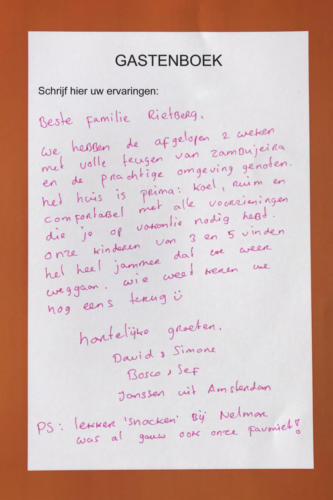 GASTENBOEK
Schrijf hier uw ervaringen:
Beste familie Rietberg,
We hebben de afgelopen 2 weken
met volle teugen van Zambujeira
en de prachtige omgeving genoten.
Het huis is prima: koel, ruim en
comfortabel met alle voorzieningen
die je op vakantie nodig hebt.
Onze kinderen van 3 en 5 vinden
het heel jammer dat we weer
weggaan. Wie weet keren we
nog eens terug ☺
hartelijke groeten,
David & Simone
Bosco & Sef
Janssen uit Amsterdam
PS: lekker 'snacken' bij Nelmar
was al gauw ook onze favoriet!